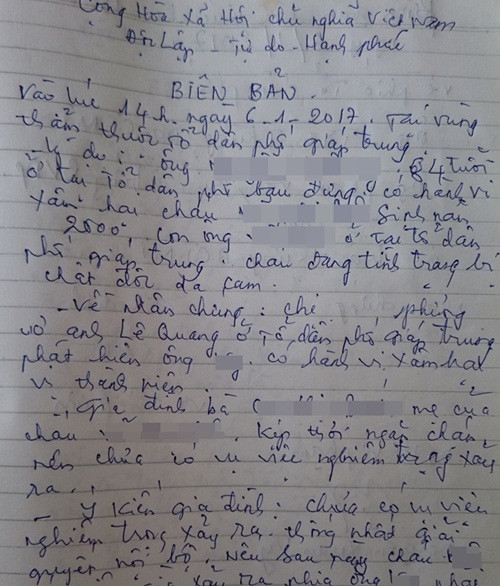 Cộng Hòa Xã Hội chủ nghĩa Việt Nam
Độc Lập - Tự do - Hành phúc
BIÊN BẢN.
Vào lúc 14h. ngày 6-1-2017. Tại vùng
thẩm thuộc tổ dân phố giáp trung.
- Lý do: ông , 84 tuổi
ở tại tổ dân phố bầu đưng, có hành vi
xâm hại cháu Sinh năm
2000, con ông ở tại tổ dân
phố giáp trung: cháu đang tình trạng bị
chất độc da cam.
- Về nhân chứng: chị , phụng
vợ anh Lê Quang ở tổ dân phố giáp trung
phát hiện ông có hành vi xâm hại
vị thành niên.
Gia đình bà mẹ của
cháu . Kịp thời ngăn chặn
nên chưa có vụ việc nghiêm trọng xảy
ra.
- Ý kiến gia đình: chưa có vụ việc
nghiêm trọng xảy ra. thống nhất giải
quyết nội bộ. nếu sau này cháu
xảy ra phía ông